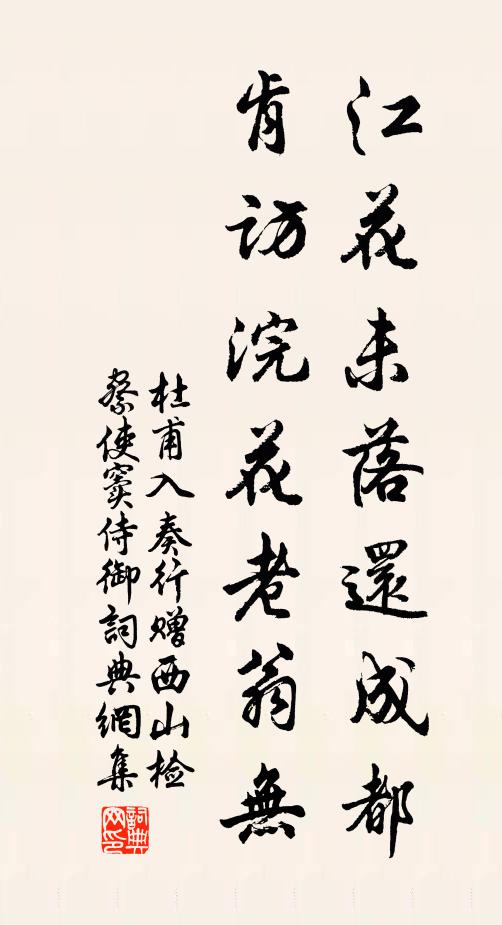 江花未落還成都
肯訪浣花老翁無
杜甫入奏行赠西山检
察使窦侍御詞典網集
詞典
网印